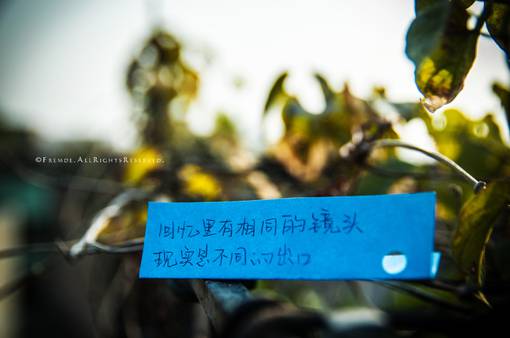 ©FREMDE.ALLRIGHTSRESERVED.
回忆里有相同的镜头
现实总不同的出口